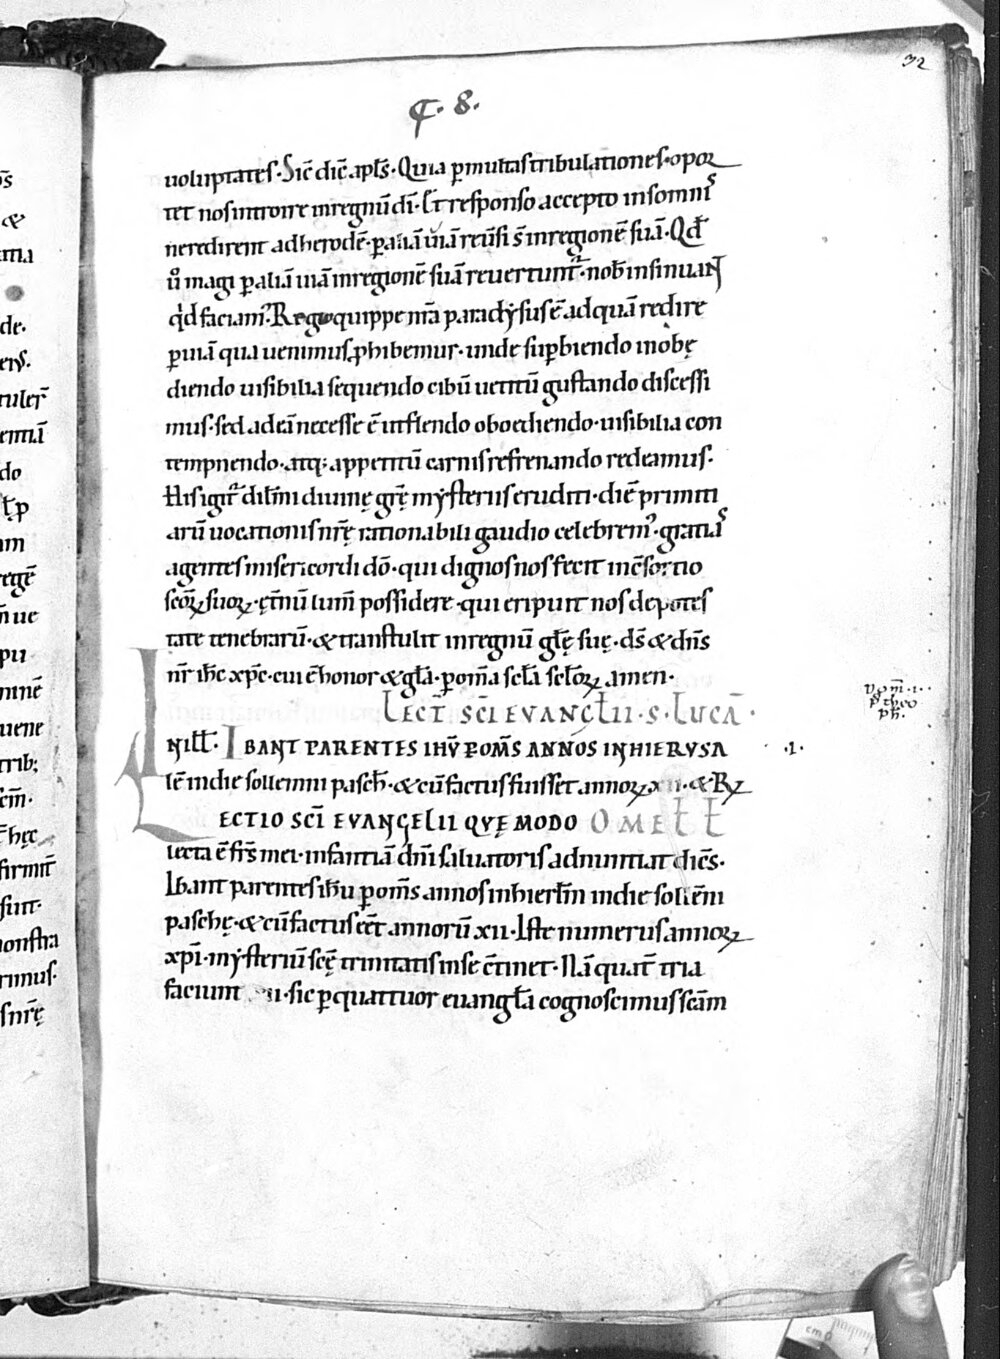 32
C. 8.
uoluptates. Sic̄ dic̄ apl̄s. Quia ꝑ multas tribulationes opor
tet nos introire in regnū dī. Et̄ responso accepto in somnis
ne redirent ad herodē. ꝑ aliā uiā reūsi s̄ in regionē suā. Qđ
ū magi ꝑ aliā uiā in regionē suā reuertunt̄. nob̄ insinuant
qd̄ faciam. Regio quippe nr̄a paradysus ē ad quā redire
ꝑ uiā qua uenimus ꝓhibemur. unde suꝑbiendo inobę
diendo uisibilia sequendo cibū uetitū gustando discessi
mus. sed ad eā necesse ē ut flendo oboediendo. uisibilia con
tempnendo. atq; appetitū carnis refrenando redeamus.
His igit̄ dil̄mi diuinę gr̄ę mysteriis eruditi. diē primiti
arū uocationis nr̄ę rationabili gaudio celebrem. gratias
agentes misericordi dō. qui dignos nos fecit in c̄sortio
scōꝝ suoꝝ. ęt̄nū lum̄ possidere. qui eripuit nos de potes
tate tenebrarū. & transtulit in regnū gl̄ę suę. ds̄ & dn̄s
nr̄ ih̄c xp̄c. cui ē honor & gl̄a. ꝑ om̄a scl̄a scl̄oꝝ amen.
LECT̄ SC̄I EVANGL̄II. S. LUCĀ.
In ill̄. IBANT PARENTES IHV̄ P OM̄S ANNOS IN HIERVSA
lē in die sollemni pasch̄. & cū factus fuisset annoꝝ xii. & RꝜ
LECTIO SC̄I EVANGELII QVĘ MODO OMEL̄
lecta ē frs̄ mei. infantiā dn̄i saluatoris adnuntiat dicēs.
Ibant parentes ih̄u ꝑ om̄s annos in hierl̄m in die sollēni
paschę. & cū factus eēt annorū xii. Iste numerus annoꝝ
xp̄i. mysteriū scę̄ trinitatis in se c̄tinet. Nā quat̄ tria
faciunt xii. sic ꝑ quattuor euangl̄a cognoscimus scām
.1.